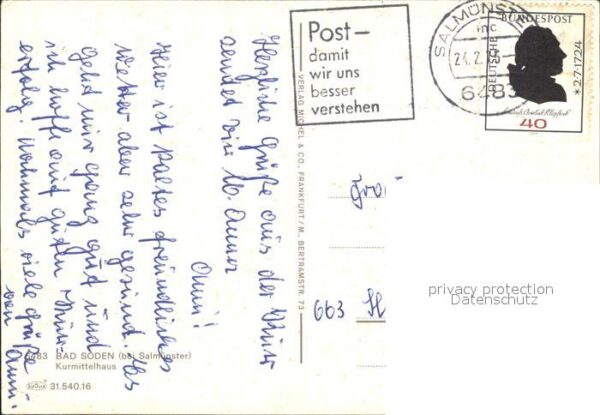 Post—
damit
wir uns
besser
verstehen
SALMÜNSTER
24.2.
6483
DEUTSCHE BUNDESPOST
*2.7.1724
40
Herzliche Grüße aus der Kur
sendet Dir
Anni!
Hier ist kaltes freundliches
Wetter aber sehr gesund. Es
geht mir ganz gut und
ich hoffe auf guten Kur-
erfolg. Nochmals viele Grüße
von Anni.
VERLAG MICHEL & CO., FRANKFURT/M., BERTRAMSTR. 73
663
privacy protection
Datenschutz
6483 BAD SODEN (bei Salmünster)
Kurmittelhaus
31.540.16